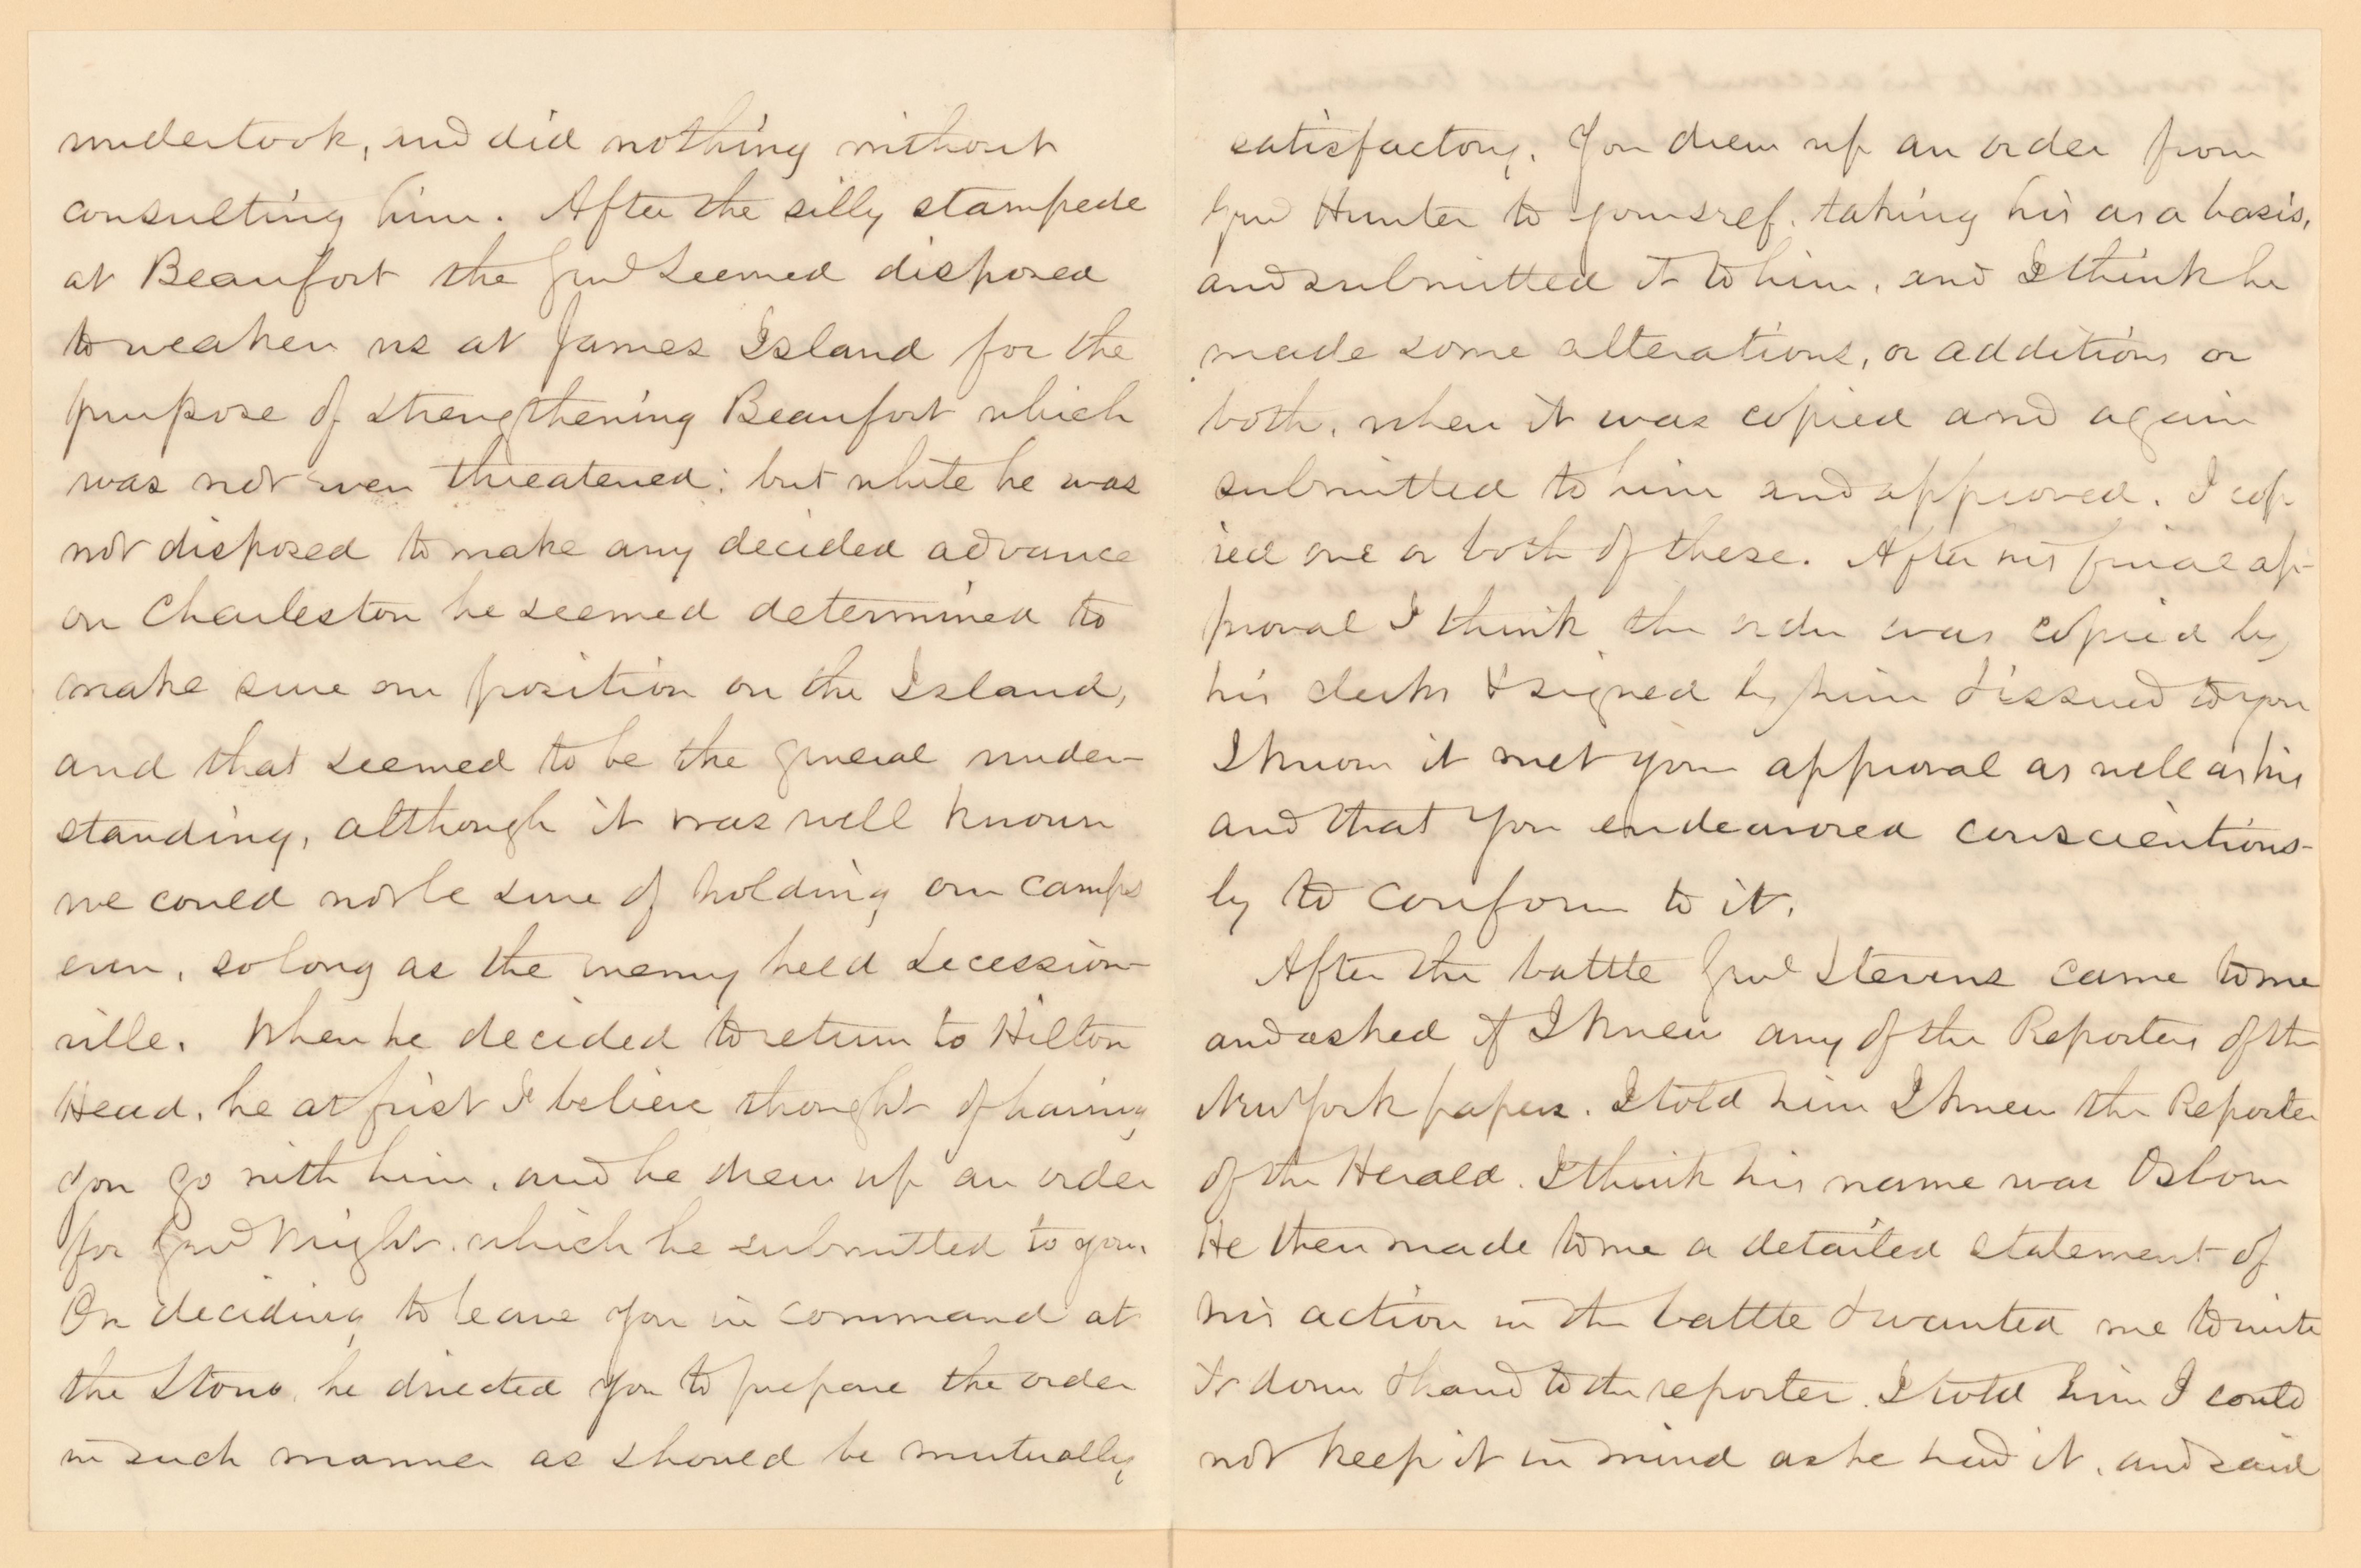 undertook, and did nothing without
consulting him. After the silly stampede
at Beaufort the Genl seemed disposed
to weaken us at James Island for the
purpose of strengthening Beaufort which
was not even threatened; but while he was
not disposed to make any decided advance
on Charleston he seemed determined to
make sure our position on the Island,
and that seemed to be the general under-
standing, although it was well known
we could not be sure of holding our camps
even, so long as the enemy held Secession-
ville. When he decided to return to Hilton
Head, he at first I believe thought of having
you go with him, and he drew up an order
for Genl Wright, which he submitted to you.
On deciding to leave you in command at
the Stono, he directed you to prepare the order
in such manner as should be mutually
satisfactory. You drew up an order from
Genl Hunter to yourself, taking his as a basis,
and submitted it to him, and I think he
made some alterations, or additions or
both, when it was copied and again
submitted to him and approved. I cop
ied one or both of these. After his final ap-
proval I think the order was copied by
his clerks & signed by him & issued to you
I know it met your approval as well as his
and that you endeavored conscientious-
ly to conform to it.
After the battle Genl Stevens came to me
and asked if I knew any of the Reporters of the
New York papers. I told him I knew the Reporter
of the Herald. I think his name was Osborn
He then made to me a detailed statement of
his action in the battle & wanted me to write
it down & hand to the reporter. I told him I could
not keep it in mind as he had it, and said